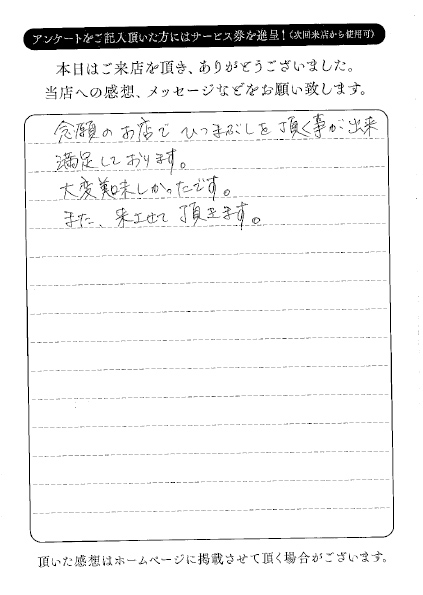 アンケートをご記入頂いた方にはサービス券を進呈!(次回来店から使用可)
本日はご来店を頂き、ありがとうございました。
当店への感想、メッセージなどをお願い致します。
念願のお店で ひつまぶしを 頂く事が出来
満足しております。
大変美味しかったです。
また、来させて頂きます。
頂いた感想はホームページに掲載させて頂く場合がございます。